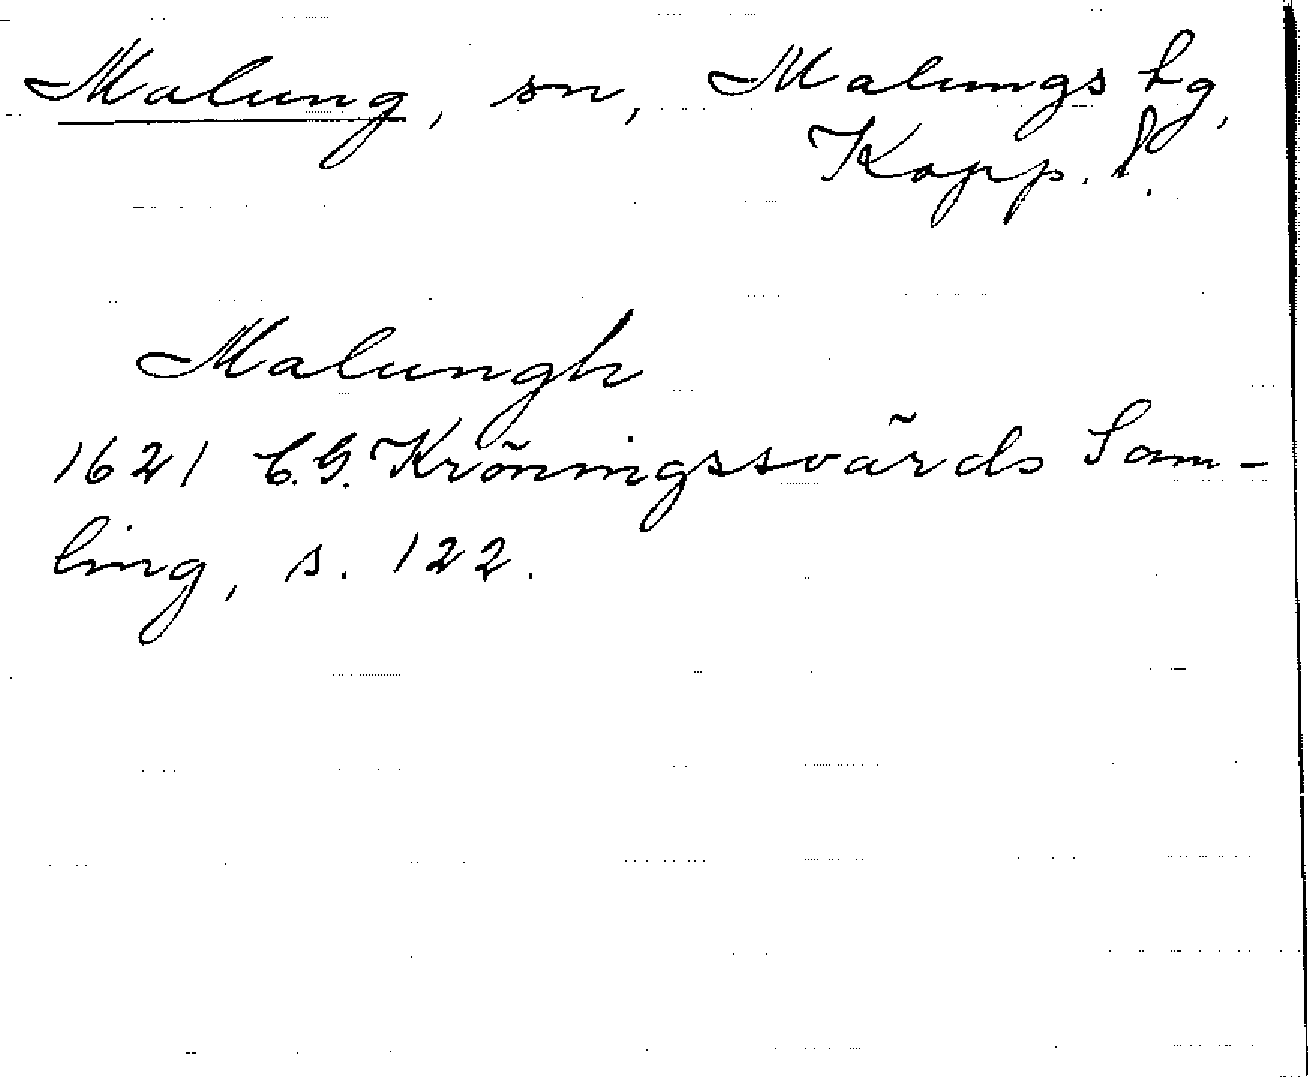 Malung, sn, Malungs hg,
Kopp. l.
Malungh
1621 C.G. Kröningssvärds Sam-
ling, s. 122.